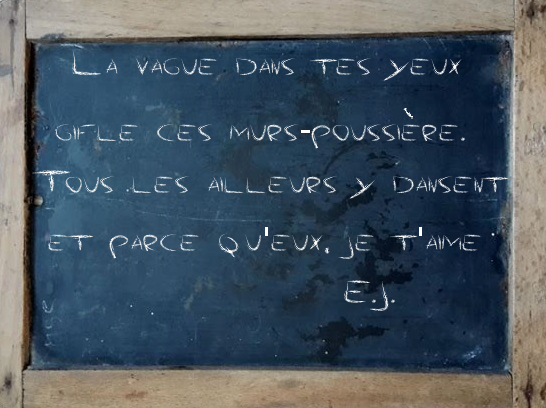 La vague dans tes yeux
gifle ces murs-poussière.
Tous les ailleurs y dansent
et parce qu'eux, je t'aime
E.J.